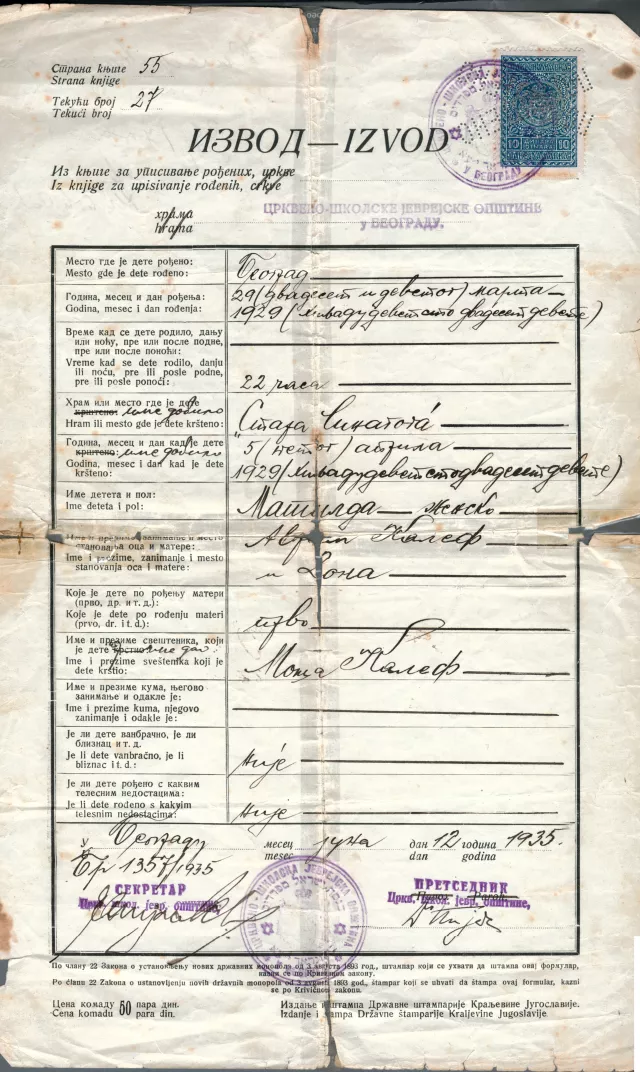 Страна књиге 55
Strana knjige
Текући број 27
Tekući broj
ИЗВОД—IZVOD
Из књиге за уписивање рођених, цркве
Iz knjige za upisivanje rođenih, crkve
храма
hrama
ЦРКВЕНО-ШКОЛСКЕ ЈЕВРЕЈСКЕ ОПШТИНЕ
у БЕОГРАДУ.
10 10
У БЕОГРАДУ
Место где је дете рођено:
Mesto gde je dete rođeno:
Београд
Година, месец и дан рођења:
Godina, mesec i dan rođenja:
29 (двадесет и деветог) марта
1929 (хиљадудевестодвадесетдевете)
Време кад се дете родило, дању
или ноћу, пре или после подне,
пре или после поноћи:
Vreme kad se dete rodilo, danju
ili noću, pre ili posle podne,
pre ili posle ponoći:
22 часа
Храм или место где је дете
крштено: име добило
Hram ili mesto gde je dete kršteno:
„Стара Синагога"
Година, месец и дан кад је дете
крштено: име добило
Godina, mesec i dan kad je dete
kršteno:
5 (петог) априла
1929 (хиљадудевестодвадесетдевете)
Име детета и пол:
Ime deteta i pol:
Матилда — женско
Име и презиме, занимање и место
становања оца и матере:
Ime i prezime, zanimanje i mesto
stanovanja oca i matere:
Аврам Калеф
и Бона
Које је дете по рођењу матери
(прво, др. и т. д.):
Koje je dete po rođenju materi
(prvo, dr. i t d.):
прво
Име и презиме свештеника, који
је дете крстио: име дао:
Ime i prezime sveštenika koji je
dete krstio:
Моша Калеф
Име и презиме кума, његово
занимање и одакле је:
Ime i prezime kuma, njegovo
zanimanje i odakle je:
Је ли дете ванбрачно, је ли
близнац и т. д.
Je li dete vanbračno, je li
bliznac i t. d.:
није
Је ли дете рођено с каквим
телесним недостацима:
Je li dete rođeno s kakvim
telesnim nedostacima:
није
у Београду месец јуна дан 12 година 1935.
mesec dan godina
Бр 1357/1935
СЕКРЕТАР
Цркв. школ. јевр. општине,
ПРЕТСЕДНИК
Парох — Paroh
Цркв. школ. јевр. општине,
По члану 22 Закона о установљењу нових државних монопола од 3 августа 1893 год., штампар који се ухвати да штампа овај формулар,
казни се по Кривичном закону.
Po članu 22 Zakona o ustanovljenju novih državnih monopola od 3 avgusta 1893 god., štampar koji se uhvati da štampa ovaj formular, kazni
se po Krivičnom zakonu.
Цена комаду 50 пара дин.
Cena komadu para din.
Издање и штампа Државне штампарије Краљевине Југославије.
Izdanje i štampa Državne štamparije Kraljevine Jugoslavije